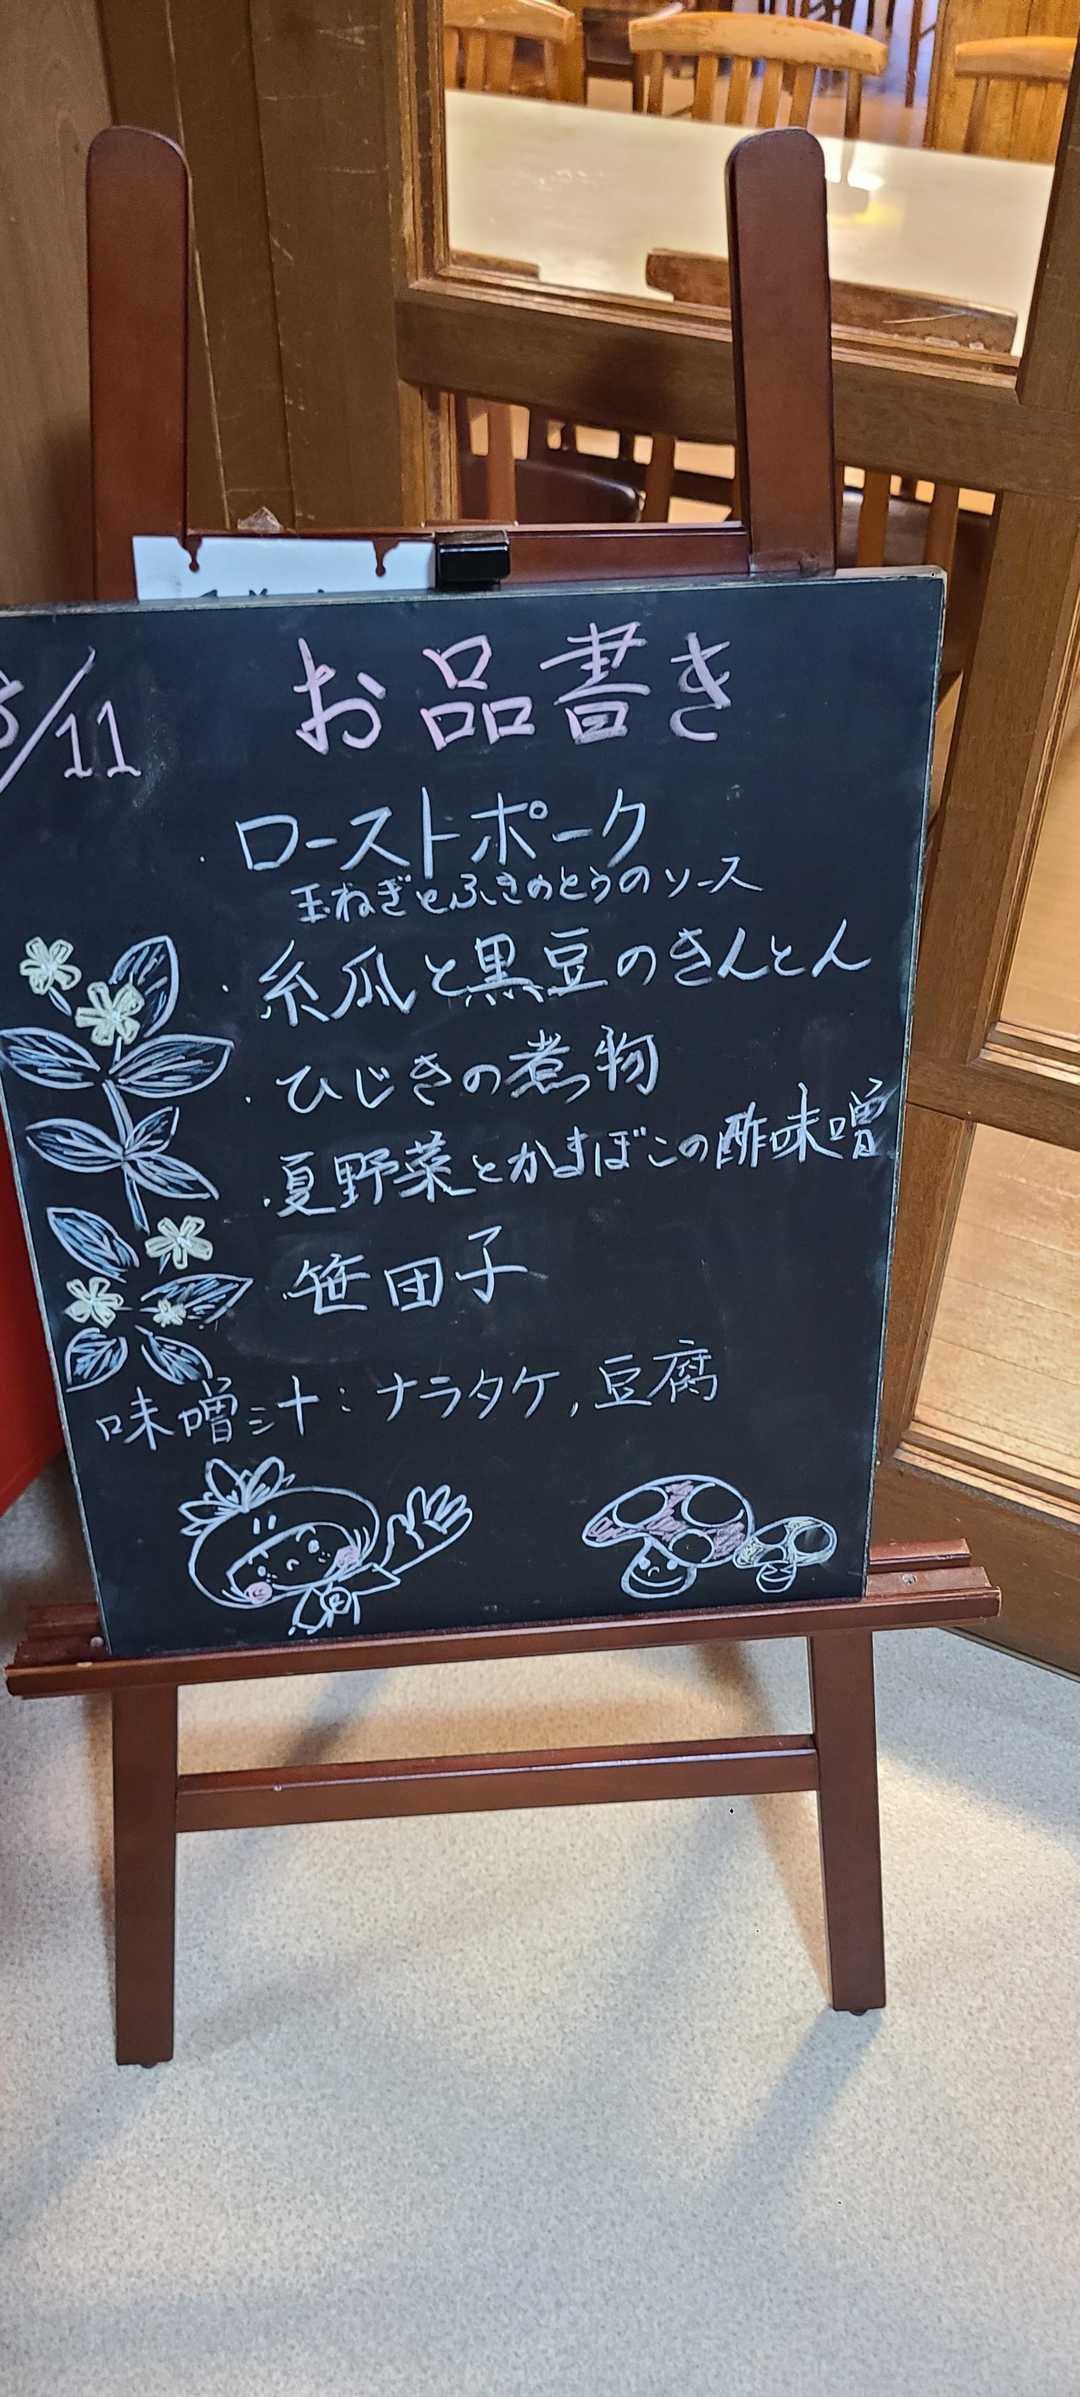 /11 お品書き
・ローストポーク
玉ねぎとふきのとうのソース
・糸瓜と黒豆のきんとん
・ひじきの煮物
・夏野菜とかまぼこの酢味噌
・笹団子
味噌汁:ナラタケ、豆腐